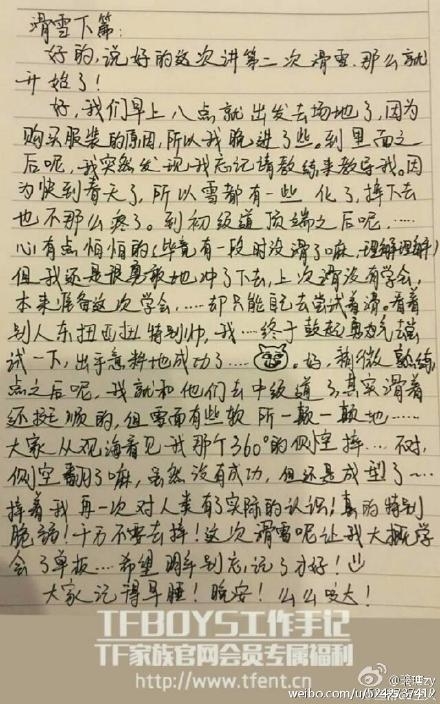 滑雪下篇:
好的,说好的这次讲第二次滑雪.那么就
开始了!
好,我们早上八点就出发去场地了,因为
购买服装的原因,所以我晚进了些.到里面之
后呢,我突然发现我忘记请教练来教导我.因
为快到春天了,所以雪都有一些化了,摔下去
也不那么疼了.到初级道顶端之后呢,……
心有点怕怕的(毕竟有一段时没滑了嘛,理解理解)
但我还是很勇敢地冲了下去,上次滑没有学会,
本来准备这次学会,……却只能自己去尝试着滑.看着
别人东扭西扭特别帅,我…终于鼓起勇气去尝
试一下,出乎意料地成功了……好,稍微熟练
点之后呢,我就和他们去中级道了,其实滑着
还挺顺的,但雪面有些软所一颠一颠地……
大家从观海看见我那个360°的侧空摔…不对,
侧空翻了嘛,虽然没有成功,但还是成型了~…
摔着我再一次对人类有了实际的认识!真的特别
脆弱!千万不要去摔!这次滑雪呢让我大概学
会了单板…希望明年别忘记了才好!
大家记得早睡!晚安!么么哒!
TFBOYS工作手记
TF家族官网会员专属福利
http://www.tfent.cn
weibo.com/u/5242737419